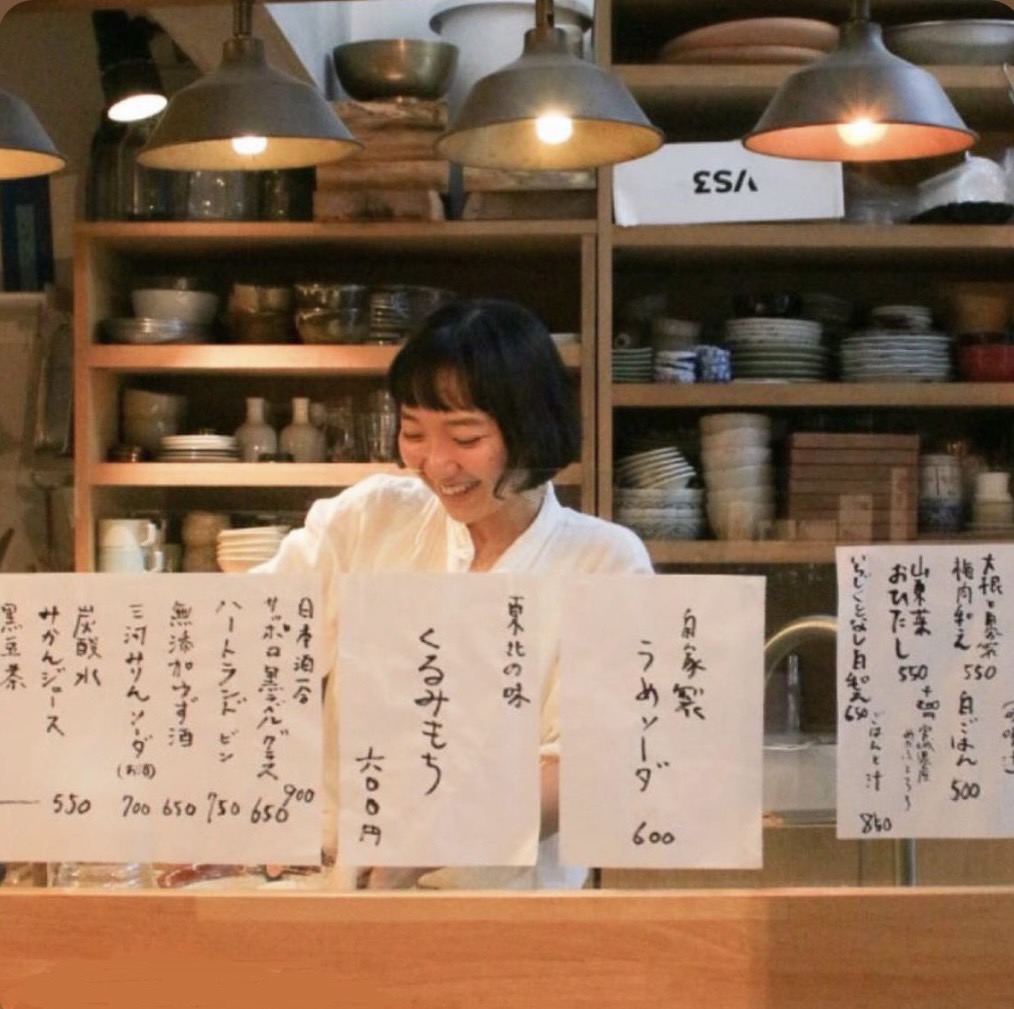 大根と果
梅肉和え
550
白ごはん
500
山東菜
おひたし
550
宮城県産
いちじくとなし白和え
650
ごはんと汁
850
自家製
うめソーダ
600
東北の味
くるみもち
六〇〇円
日本酒一合
900
サッポロ黒ラベルグラス
650
ハートランドビン
750
無添加ゆず酒
650
三河みりんソーダ
(お酒)
700
炭酸水
みかんジュース
550
黒豆茶
VS3